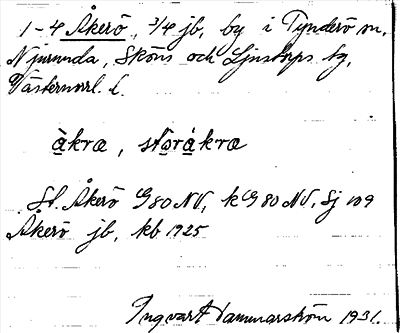 1-4 Åkerö, 3/4 jb, by i Tynderö sn,
Njurunda, Sköns och Ljustorps tg,
Västernorrl. l.
åkræ, storåkræ
St. Åkerö G80 NV, k G80 NV, Sj 109
Åkerö jb, kb 1925
Ingvart Hammarström 1931.